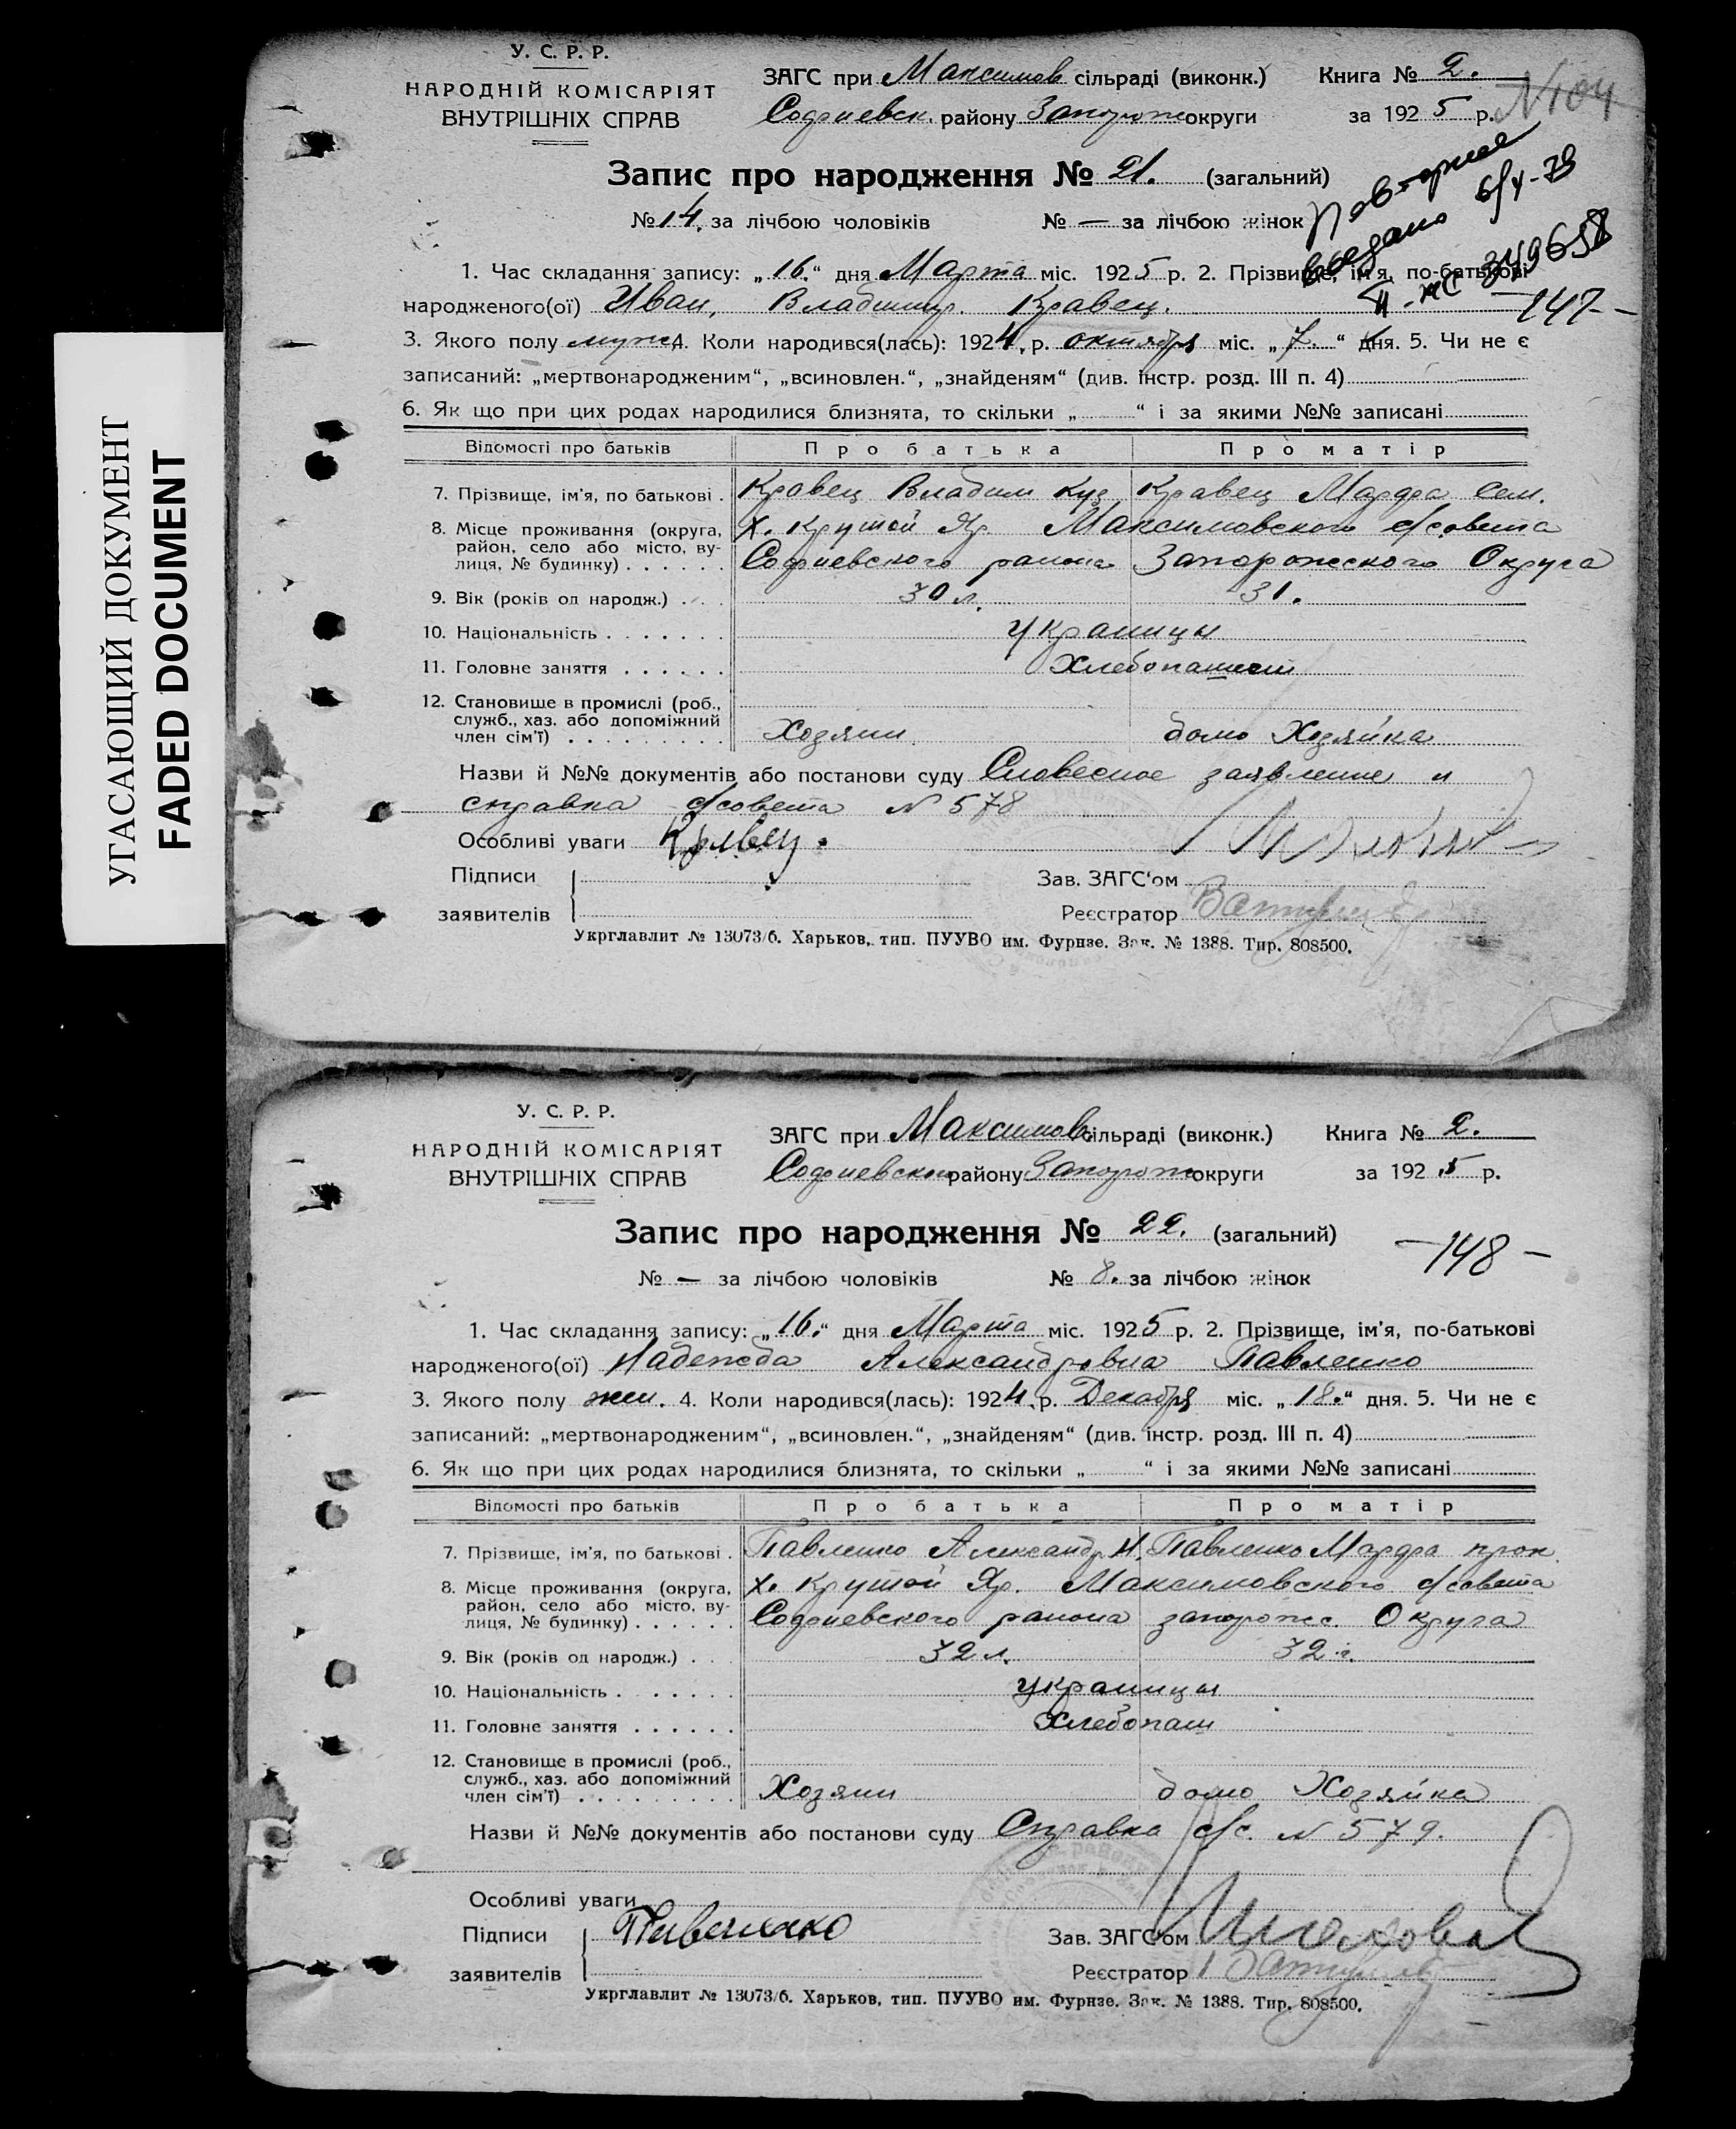 УГАСАЮЩИЙ ДОКУМЕНТ
FADED DOCUMENT
У. С. Р. Р.
НАРОДНІЙ КОМІСАРІЯТ
ВНУТРІШНІХ СПРАВ
ЗАГС при Максимов сільраді (виконк.) Книга № 2.
Софиевск. району Запорож округи за 1925 р. N104
Запис про народження № 21. (загальний)
№ 14. за лічбою чоловіків № — за лічбою жінок
Повторное
выдано 6/V-79
II-ЖС 349658
1. Час складання запису: „16.“ дня Марта міс. 1925 р. 2. Прізвище, ім'я, по-батькові
народженого(ої) Иван, Владимир. Кравец. —147—
3. Якого полу муж. 4. Коли народився(лась): 1924, р. октября міс. „7.“ дня. 5. Чи не є
записаний: „мертвонародженим“, „всиновлен.“, „знайденям“ (див. інстр. розд. III п. 4)
6. Як що при цих родах народилися близнята, то скільки „ “ і за якими №№ записані
Відомості про батьків Про батька Про матір
7. Прізвище, ім'я, по батькові . Кравец Владим Куз Кравец Марфа Сем.
8. Місце проживання (округа, х. Крутой Яр. Максимовского с/совета
район, село або місто, ву-
лиця, № будинку) . . . . . . Софиевского района Запорожского Округа
9. Вік (років од народж.) . . . 30 л. 31.
10. Національність . . . . . . . украинцы
11. Головне заняття . . . . . . Хлебопашест
12. Становище в промислі (роб.,
служб., хаз. або допоміжний
член сім'ї) . . . . . . . . . Хозяин. домо Хозяйка
Назви й №№ документів або постанови суду Словесное заявление и
справка с/совета N 578
Особливі уваги Кравец.
Підписи Зав. ЗАГС'ом
заявителів Реєстратор
Укрглавлит № 13073/6. Харьков, тип. ПУУВО им. Фурнзе. Зак. № 1388. Тир. 808500.
У. С. Р. Р.
НАРОДНІЙ КОМІСАРІЯТ
ВНУТРІШНІХ СПРАВ
ЗАГС при Максимов. сільраді (виконк.) Книга № 2.
Софиевском району Запорож округи за 1925 р.
Запис про народження № 22. (загальний)
—148—
№ — за лічбою чоловіків № 8. за лічбою жінок
1. Час складання запису: „16.“ дня Марта міс. 1925 р. 2. Прізвище, ім'я, по-батькові
народженого(ої) Надежда Александровна Павленко
3. Якого полу жен. 4. Коли народився(лась): 1924, р. Декабря міс. „18.“ дня. 5. Чи не є
записаний: „мертвонародженим“, „всиновлен.“, „знайденям“ (див. інстр. розд. III п. 4)
6. Як що при цих родах народилися близнята, то скільки „ “ і за якими №№ записані
Відомості про батьків Про батька Про матір
7. Прізвище, ім'я, по батькові . Павленко Александр И. Павленко Марфа прок
8. Місце проживання (округа, х. Крутой Яр. Максимовского с/совета
район, село або місто, ву-
лиця, № будинку) . . . . . . Софиевского района запорожс. Округа
9. Вік (років од народж.) . . . 32 л. 32 г.
10. Національність . . . . . . . украинцы
11. Головне заняття . . . . . . Хлебопаш
12. Становище в промислі (роб.,
служб., хаз. або допоміжний
член сім'ї) . . . . . . . . . Хозяин домо Хозяйка
Назви й №№ документів або постанови суду Справка с/с. N 579.
Особливі уваги
Підписи Павленко Зав. ЗАГС'ом
заявителів Реєстратор
Укрглавлит № 13073/6. Харьков, тип. ПУУВО им. Фурнзе. Зак. № 1388. Тир. 808500.